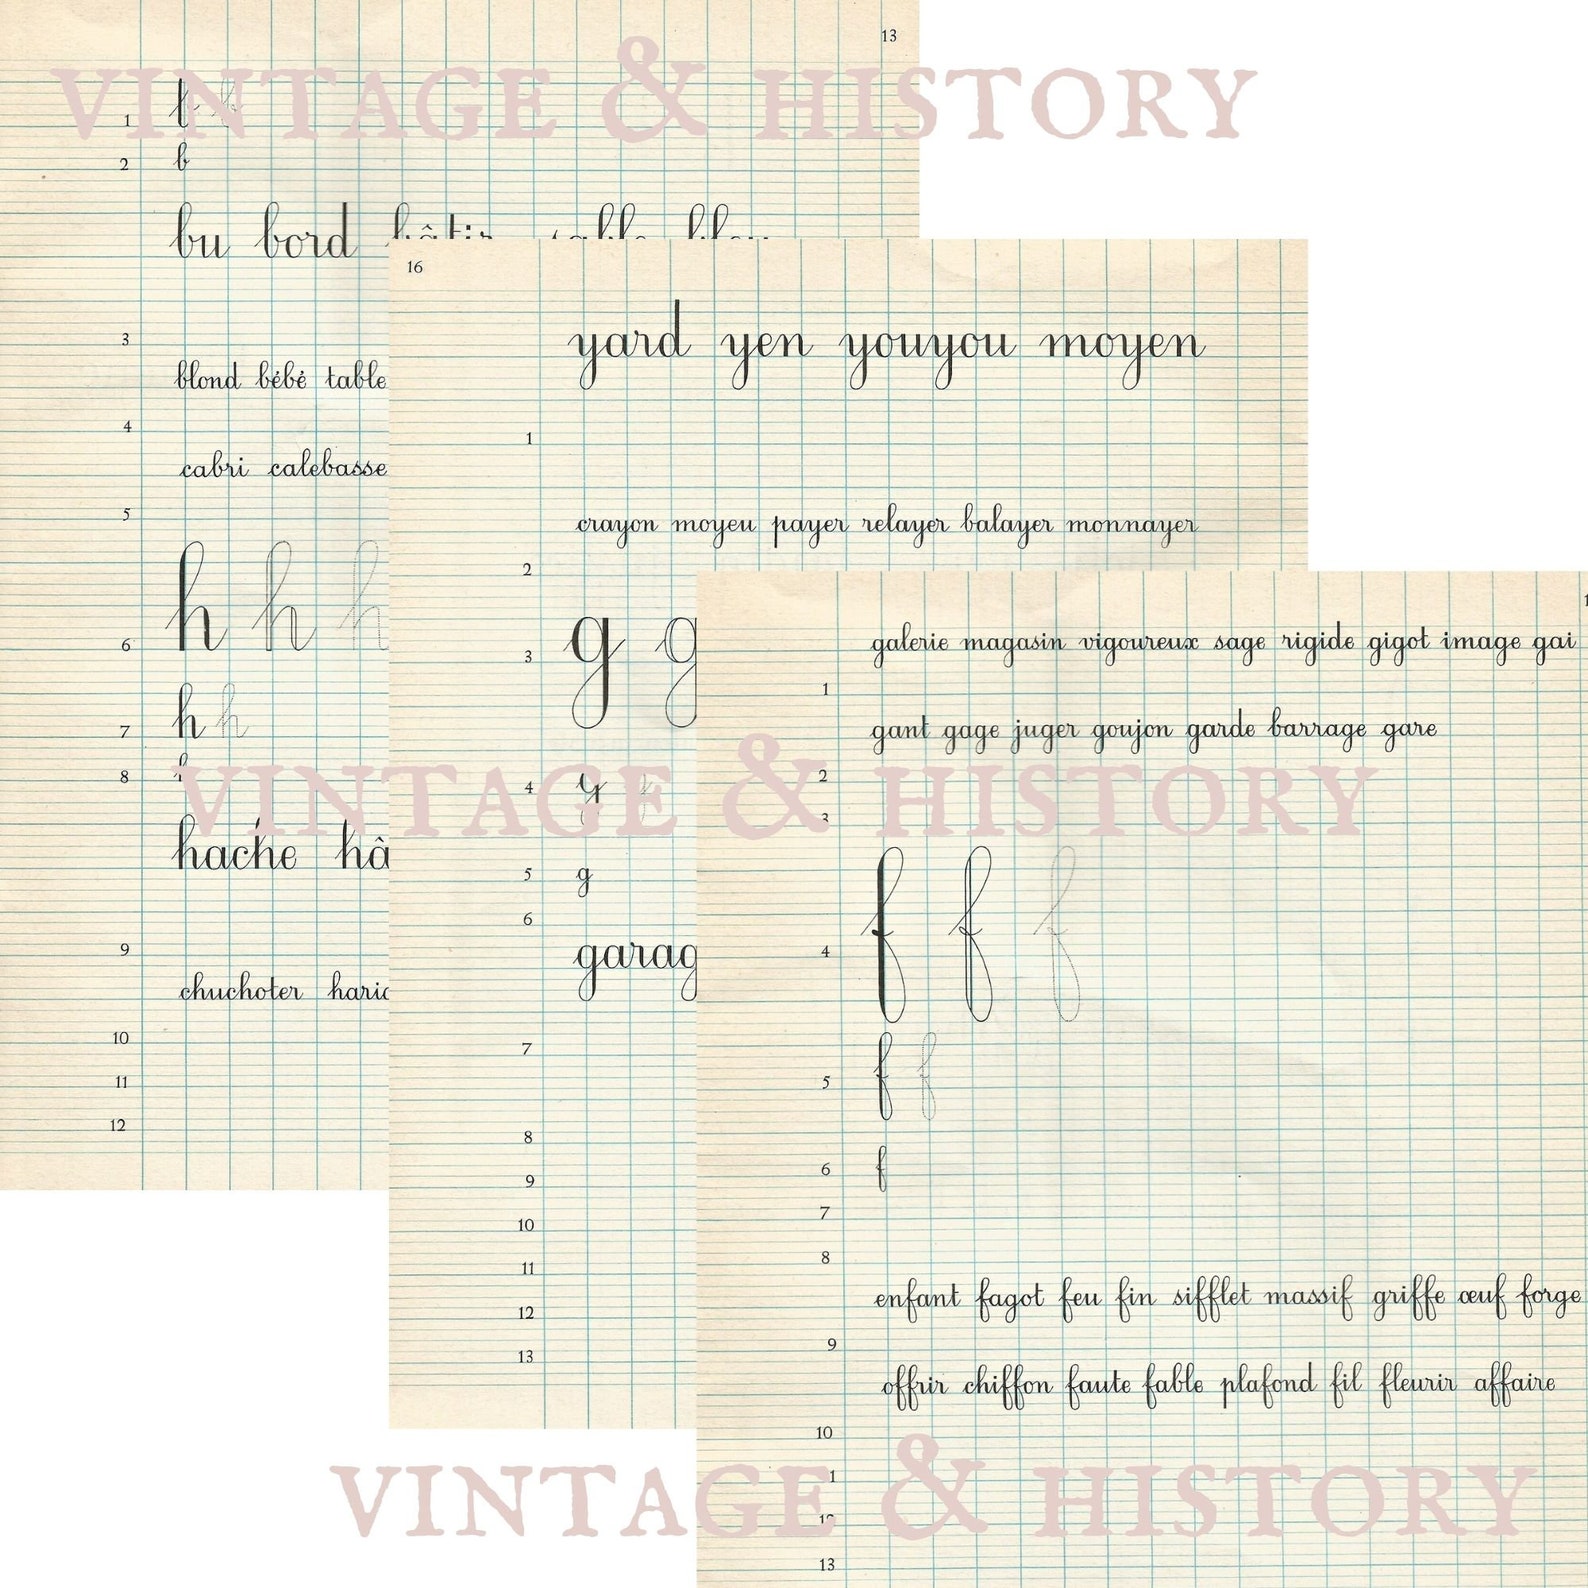 13
VINTAGE & HISTORY
1 b b
2 b
bu bord bâtir sable bleu
3
blond bébé table
4
cabri calebasse
5
h h h
6
7 h h
8 h
hache
9
chuchoter
10
11
12
16
yard yen youyou moyen
1
crayon moyeu payer relayer balayer monnayer
2
g g
3
4 g g
5 g
6
7
8
9
10
11
12
13
galerie magasin vigoureux sage rigide gigot image gai
1
gant gage juger goujon garde barrage gare
2
VINTAGE & HISTORY
3
f f f
4
5 f f
6 f
7
8
enfant fagot feu fin sifflet massif griffe œuf forge
9
offrir chiffon faute fable plafond fil fleurir affaire
10
VINTAGE & HISTORY
13